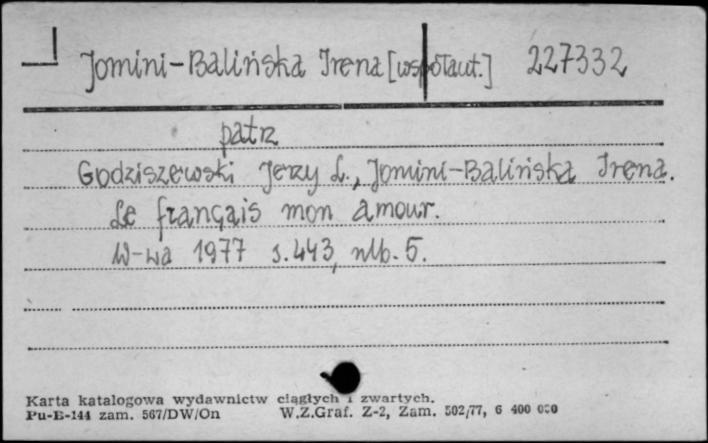 Jomini-Balińska Irena [współaut.] 227332
patrz
Godziszewski Jerzy L., Jomini-Balińska Irena.
Le français mon amour.
W-wa 1977 s. 443, nlb. 5.
Karta katalogowa wydawnictw ciągłych i zwartych.
Pu-B-144 zam. 567/DW/On W.Z.Graf. Z-2, Zam. 502/77, 6 400 000